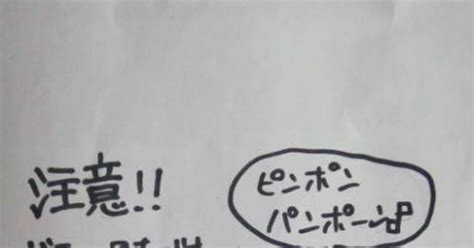 注意!!
ピンポン
パンポーン♪